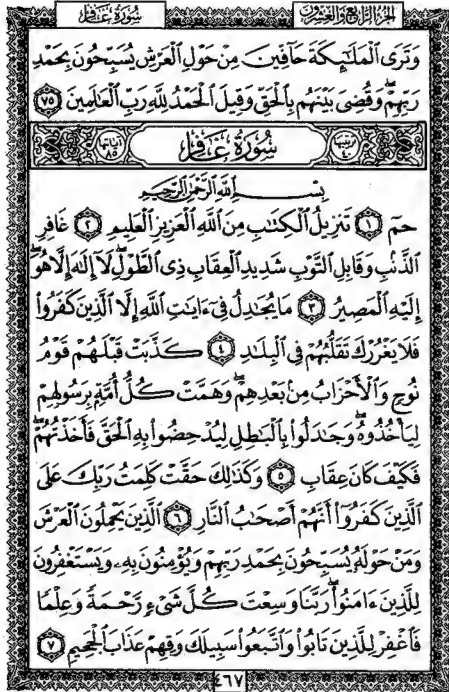 الجزء الرابع والعشرون
سورة غافر
وَتَرَى ٱلْمَلَٰٓئِكَةَ حَآفِّينَ مِنْ حَوْلِ ٱلْعَرْشِ يُسَبِّحُونَ بِحَمْدِ
رَبِّهِمْ ۖ وَقُضِىَ بَيْنَهُم بِٱلْحَقِّ وَقِيلَ ٱلْحَمْدُ لِلَّهِ رَبِّ ٱلْعَٰلَمِينَ ٧٥
ترتيبها ٤٠ سُورَةُ غَافِرٍ آياتها ٨٥
بِسْمِ ٱللَّهِ ٱلرَّحْمَٰنِ ٱلرَّحِيمِ
حمٓ ١ تَنزِيلُ ٱلْكِتَٰبِ مِنَ ٱللَّهِ ٱلْعَزِيزِ ٱلْعَلِيمِ ٢ غَافِرِ
ٱلذَّنۢبِ وَقَابِلِ ٱلتَّوْبِ شَدِيدِ ٱلْعِقَابِ ذِى ٱلطَّوْلِ ۖ لَآ إِلَٰهَ إِلَّا هُوَ ۖ
إِلَيْهِ ٱلْمَصِيرُ ٣ مَا يُجَٰدِلُ فِىٓ ءَايَٰتِ ٱللَّهِ إِلَّا ٱلَّذِينَ كَفَرُوا۟
فَلَا يَغْرُرْكَ تَقَلُّبُهُمْ فِى ٱلْبِلَٰدِ ٤ كَذَّبَتْ قَبْلَهُمْ قَوْمُ
نُوحٍ وَٱلْأَحْزَابُ مِنۢ بَعْدِهِمْ ۖ وَهَمَّتْ كُلُّ أُمَّةٍۭ بِرَسُولِهِمْ
لِيَأْخُذُوهُ ۖ وَجَٰدَلُوا۟ بِٱلْبَٰطِلِ لِيُدْحِضُوا۟ بِهِ ٱلْحَقَّ فَأَخَذْتُهُمْ ۖ
فَكَيْفَ كَانَ عِقَابِ ٥ وَكَذَٰلِكَ حَقَّتْ كَلِمَتُ رَبِّكَ عَلَى
ٱلَّذِينَ كَفَرُوٓا۟ أَنَّهُمْ أَصْحَٰبُ ٱلنَّارِ ٦ ٱلَّذِينَ يَحْمِلُونَ ٱلْعَرْشَ
وَمَنْ حَوْلَهُۥ يُسَبِّحُونَ بِحَمْدِ رَبِّهِمْ وَيُؤْمِنُونَ بِهِۦ وَيَسْتَغْفِرُونَ
لِلَّذِينَ ءَامَنُوا۟ رَبَّنَا وَسِعْتَ كُلَّ شَىْءٍ رَّحْمَةً وَعِلْمًا
فَٱغْفِرْ لِلَّذِينَ تَابُوا۟ وَٱتَّبَعُوا۟ سَبِيلَكَ وَقِهِمْ عَذَابَ ٱلْجَحِيمِ ٧
٤٦٧